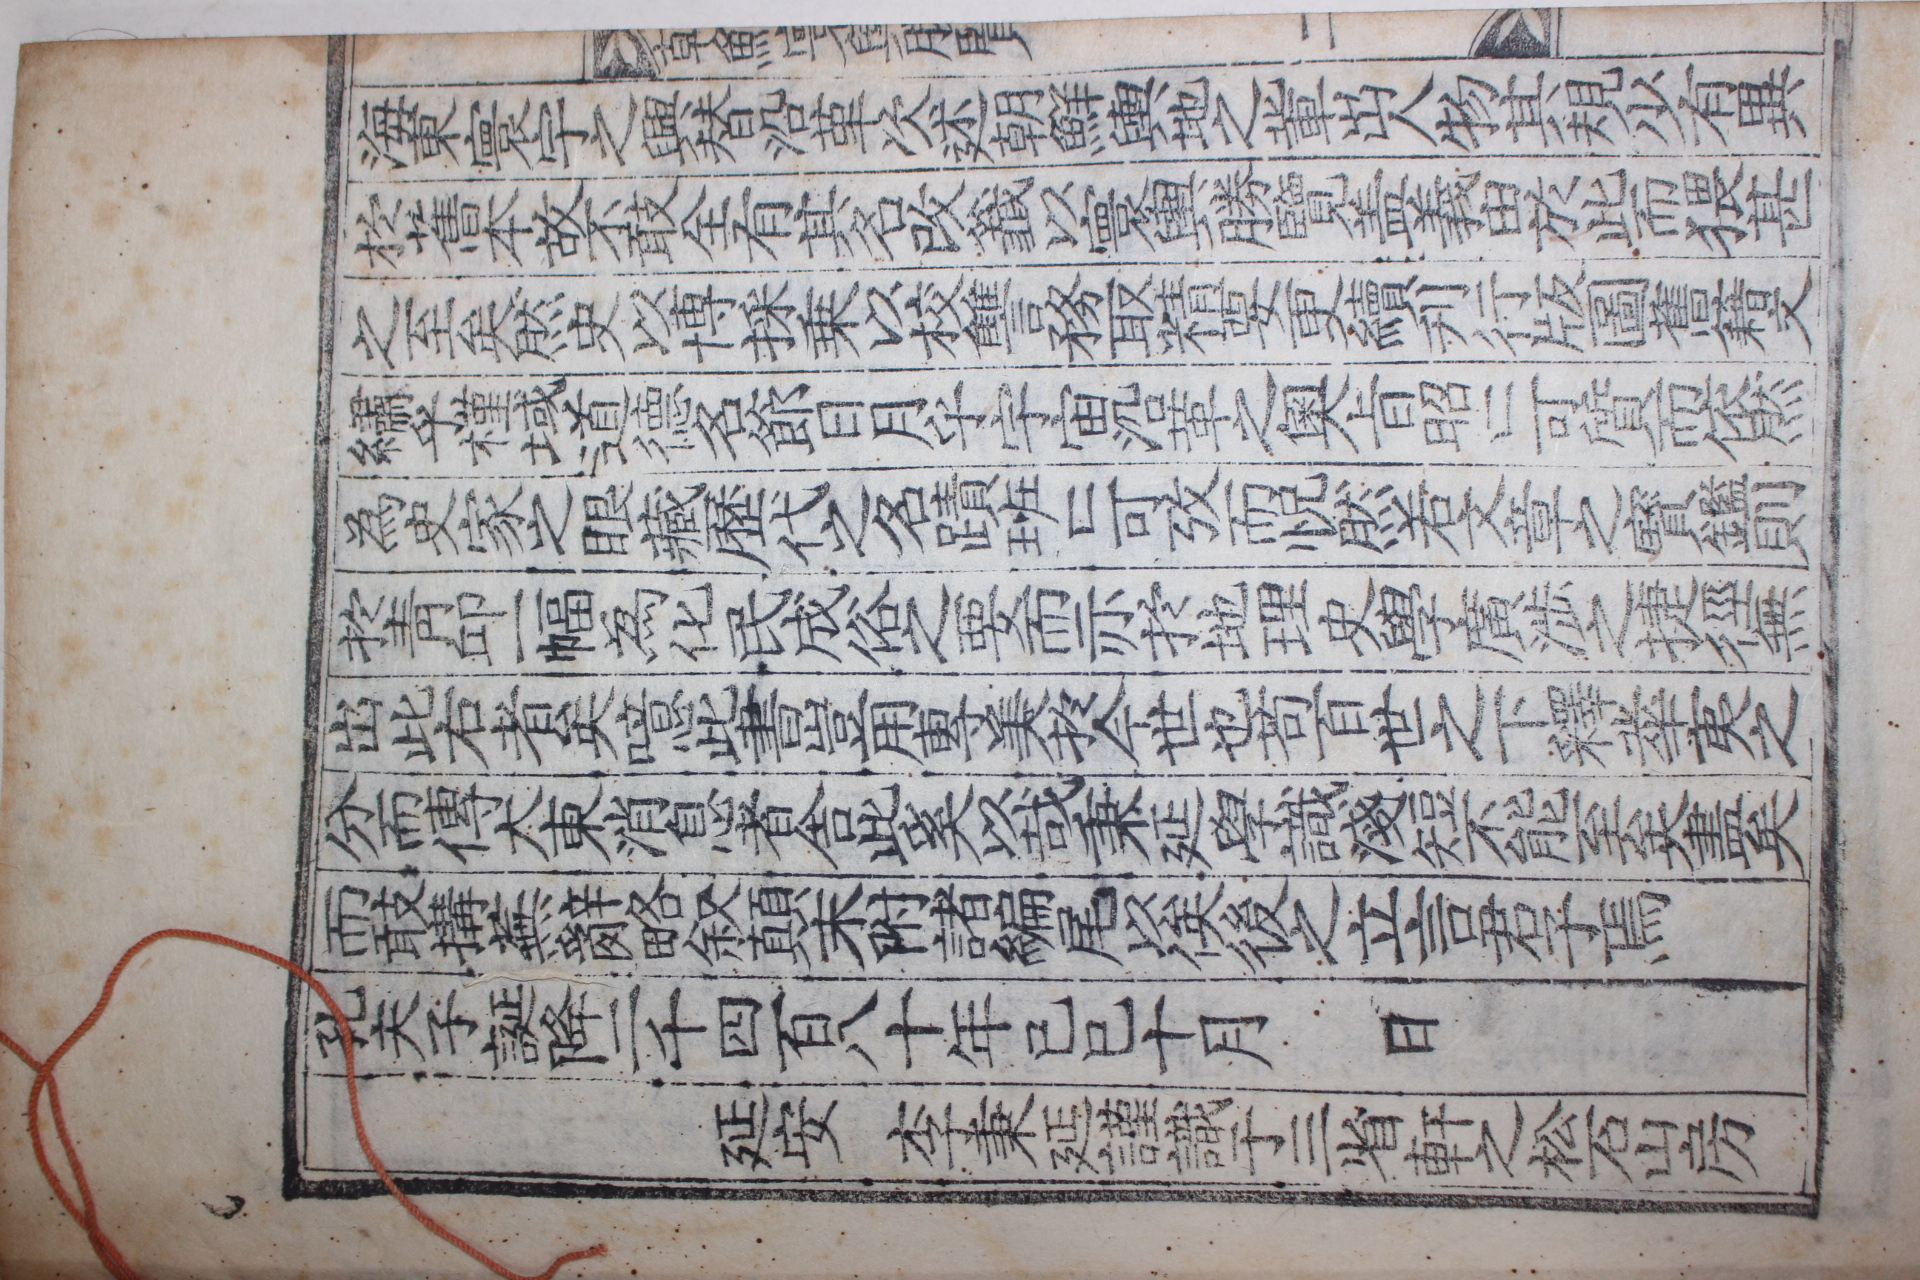 朝鮮寰輿勝覽
二
海東寰宇之興替沿革次述朝鮮輿地之輩出人物其規少有異
於舊本故不敢全有其名改籖以寰輿勝覽盖義由於此而猥甚
之至矣然史以博採乗以校讐務取精要更續刋行版圖舊籍文
繡乎槿域道德名節日月乎宇宙沿革之奧旨昭〻可質而依然
為史家之眼藏歷代之名蹟班〻可攷而恱然若文章之寶鑑則
扵靑邱一幅為化民成俗之要而亦扵地理史學廣涉之捷徑無
出此右者矣噫此書豈用專美扵今世也苟百世之下釋華夷之
分而傳大東消息者舍此奚以哉秉延學識淺短不能至矣盡矣
而敢搆蕪辭略叙顛末附諸編尾以俟後之立言君子焉
孔夫子誕降二千四百八十年己巳十月　日
延安　李秉延謹識于三省軒之松石山房